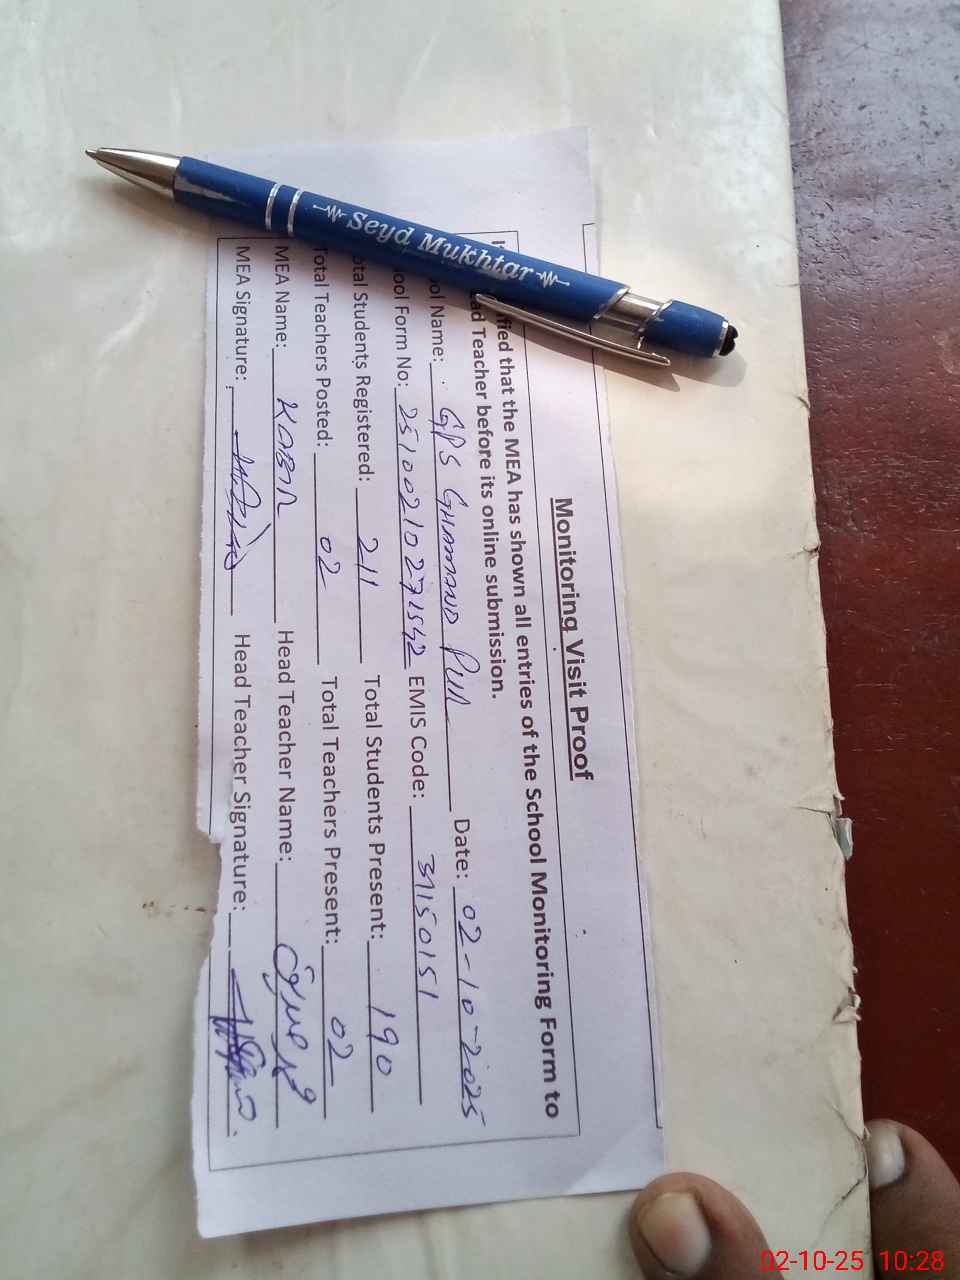 Seyd Mukhtar
Monitoring Visit Proof
fied that the MEA has shown all entries of the School Monitoring Form to
ad Teacher before its online submission.
ool Name: GPS GHAMAND PUR Date: 02-10-2025
ool Form No: 25100210271542 EMIS Code: 31150151
otal Students Registered: 211 Total Students Present: 190
Total Teachers Posted: 02 Total Teachers Present: 02
MEA Name: KABIR Head Teacher Name:
MEA Signature: Head Teacher Signature:
02-10-25 10:28